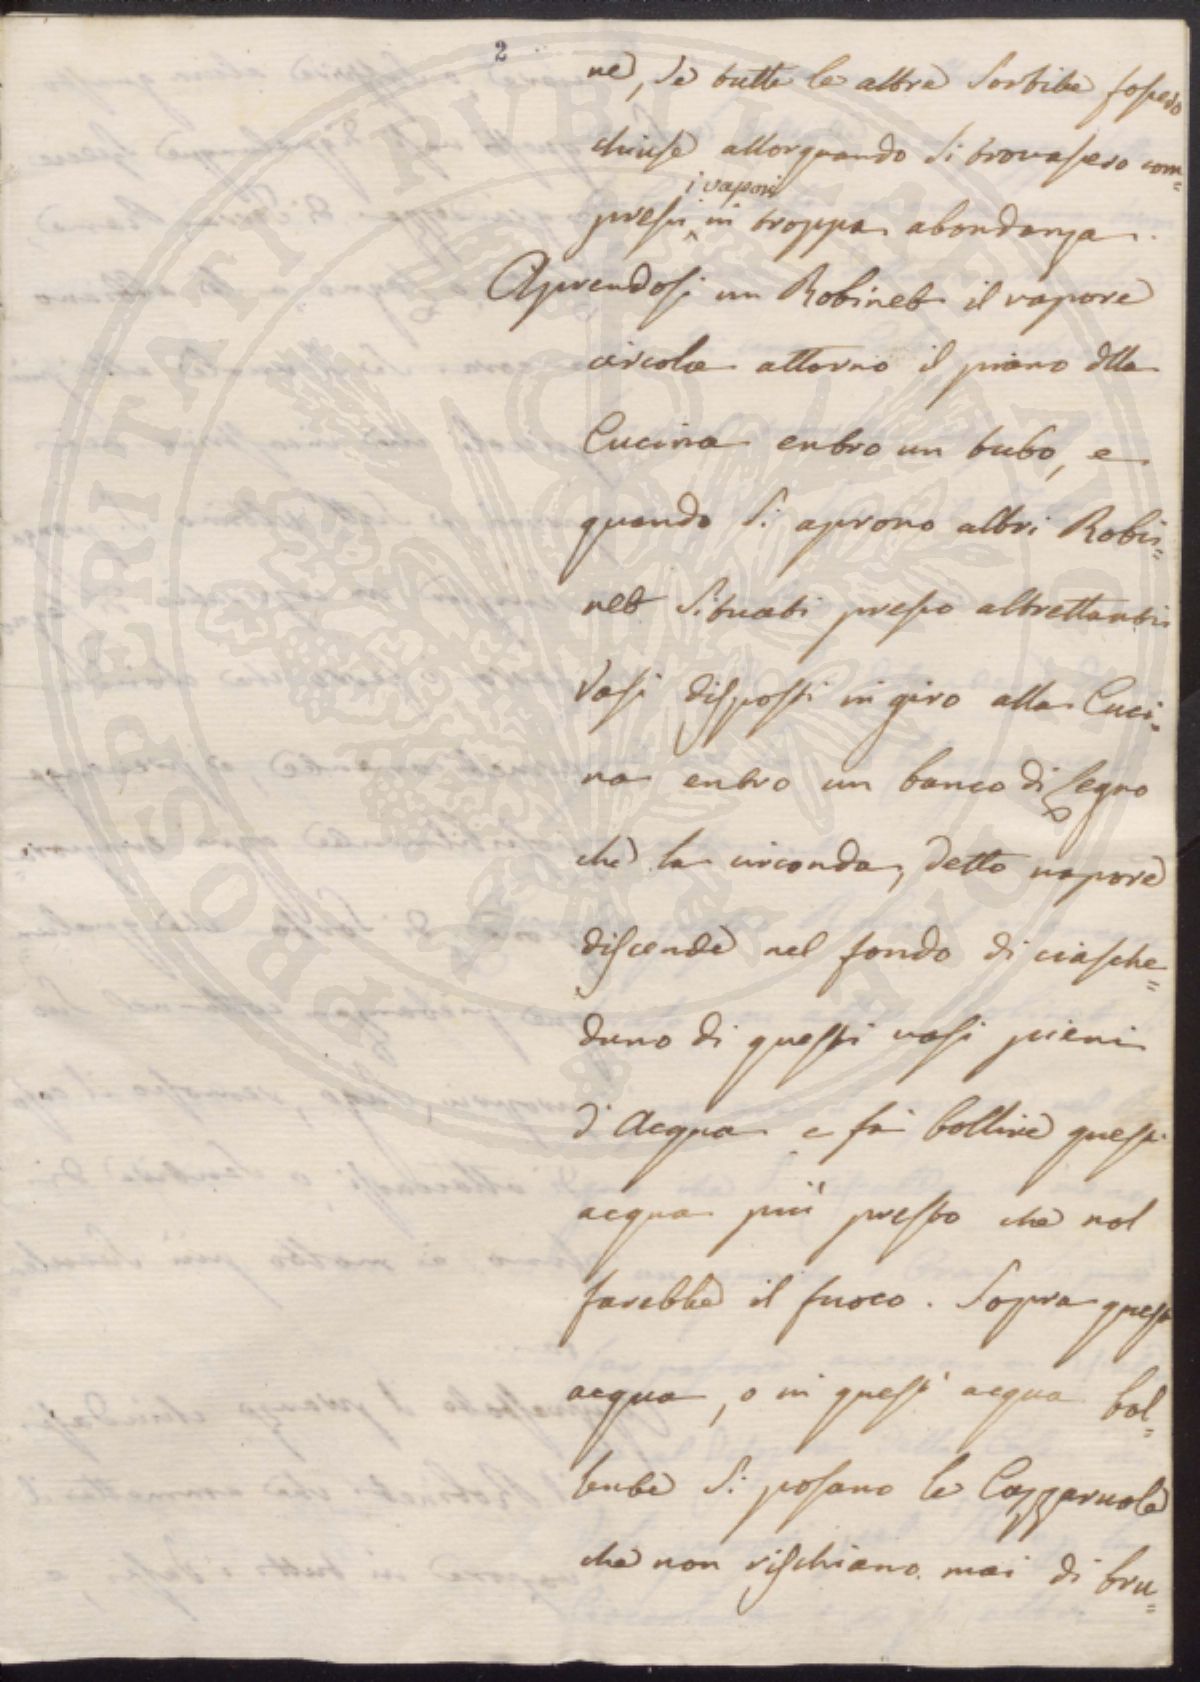 2
ne, se tutte le altre Sortite fossero
chiuse allorquando si trovassero com=
i vapori
pressi in troppa abondanza.
Aprendosi un Robinet il vapore
circola attorno il piano dlla
Cucina entro un tubo, e
quando si aprono altri Robi=
net situati presso altrettanti
Vasi disposti in giro alla Cuci=
na entro un banco di Legno
che la circonda, detto vapore
discende nel fondo di ciasche=
duno di questi vasi pieni
d'Acqua e fà bollire quest'
acqua più presto che nol
farebbe il fuoco. Sopra quest'
acqua, o in quest' acqua bol=
lente si posano le Cazzaruole
che non rischiano mai di bru=
PROSPERITATI PUBLICAE AUGENDAE